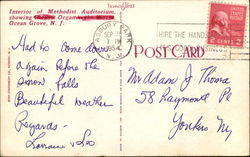 Interior of Methodist Auditorium,
showing Organ
Ocean Grove, N. J.
ASBURY PARK
SEP
1 PM
1954
N. J.
HIRE THE HANDI
2 CENTS 2
POST CARD
Had to come down
again before the
snow falls
Beautiful weather
Regards -
Lorraine + Leo
Mr Adam J Thoma
58 Raymond Pl
Yonkers Ny